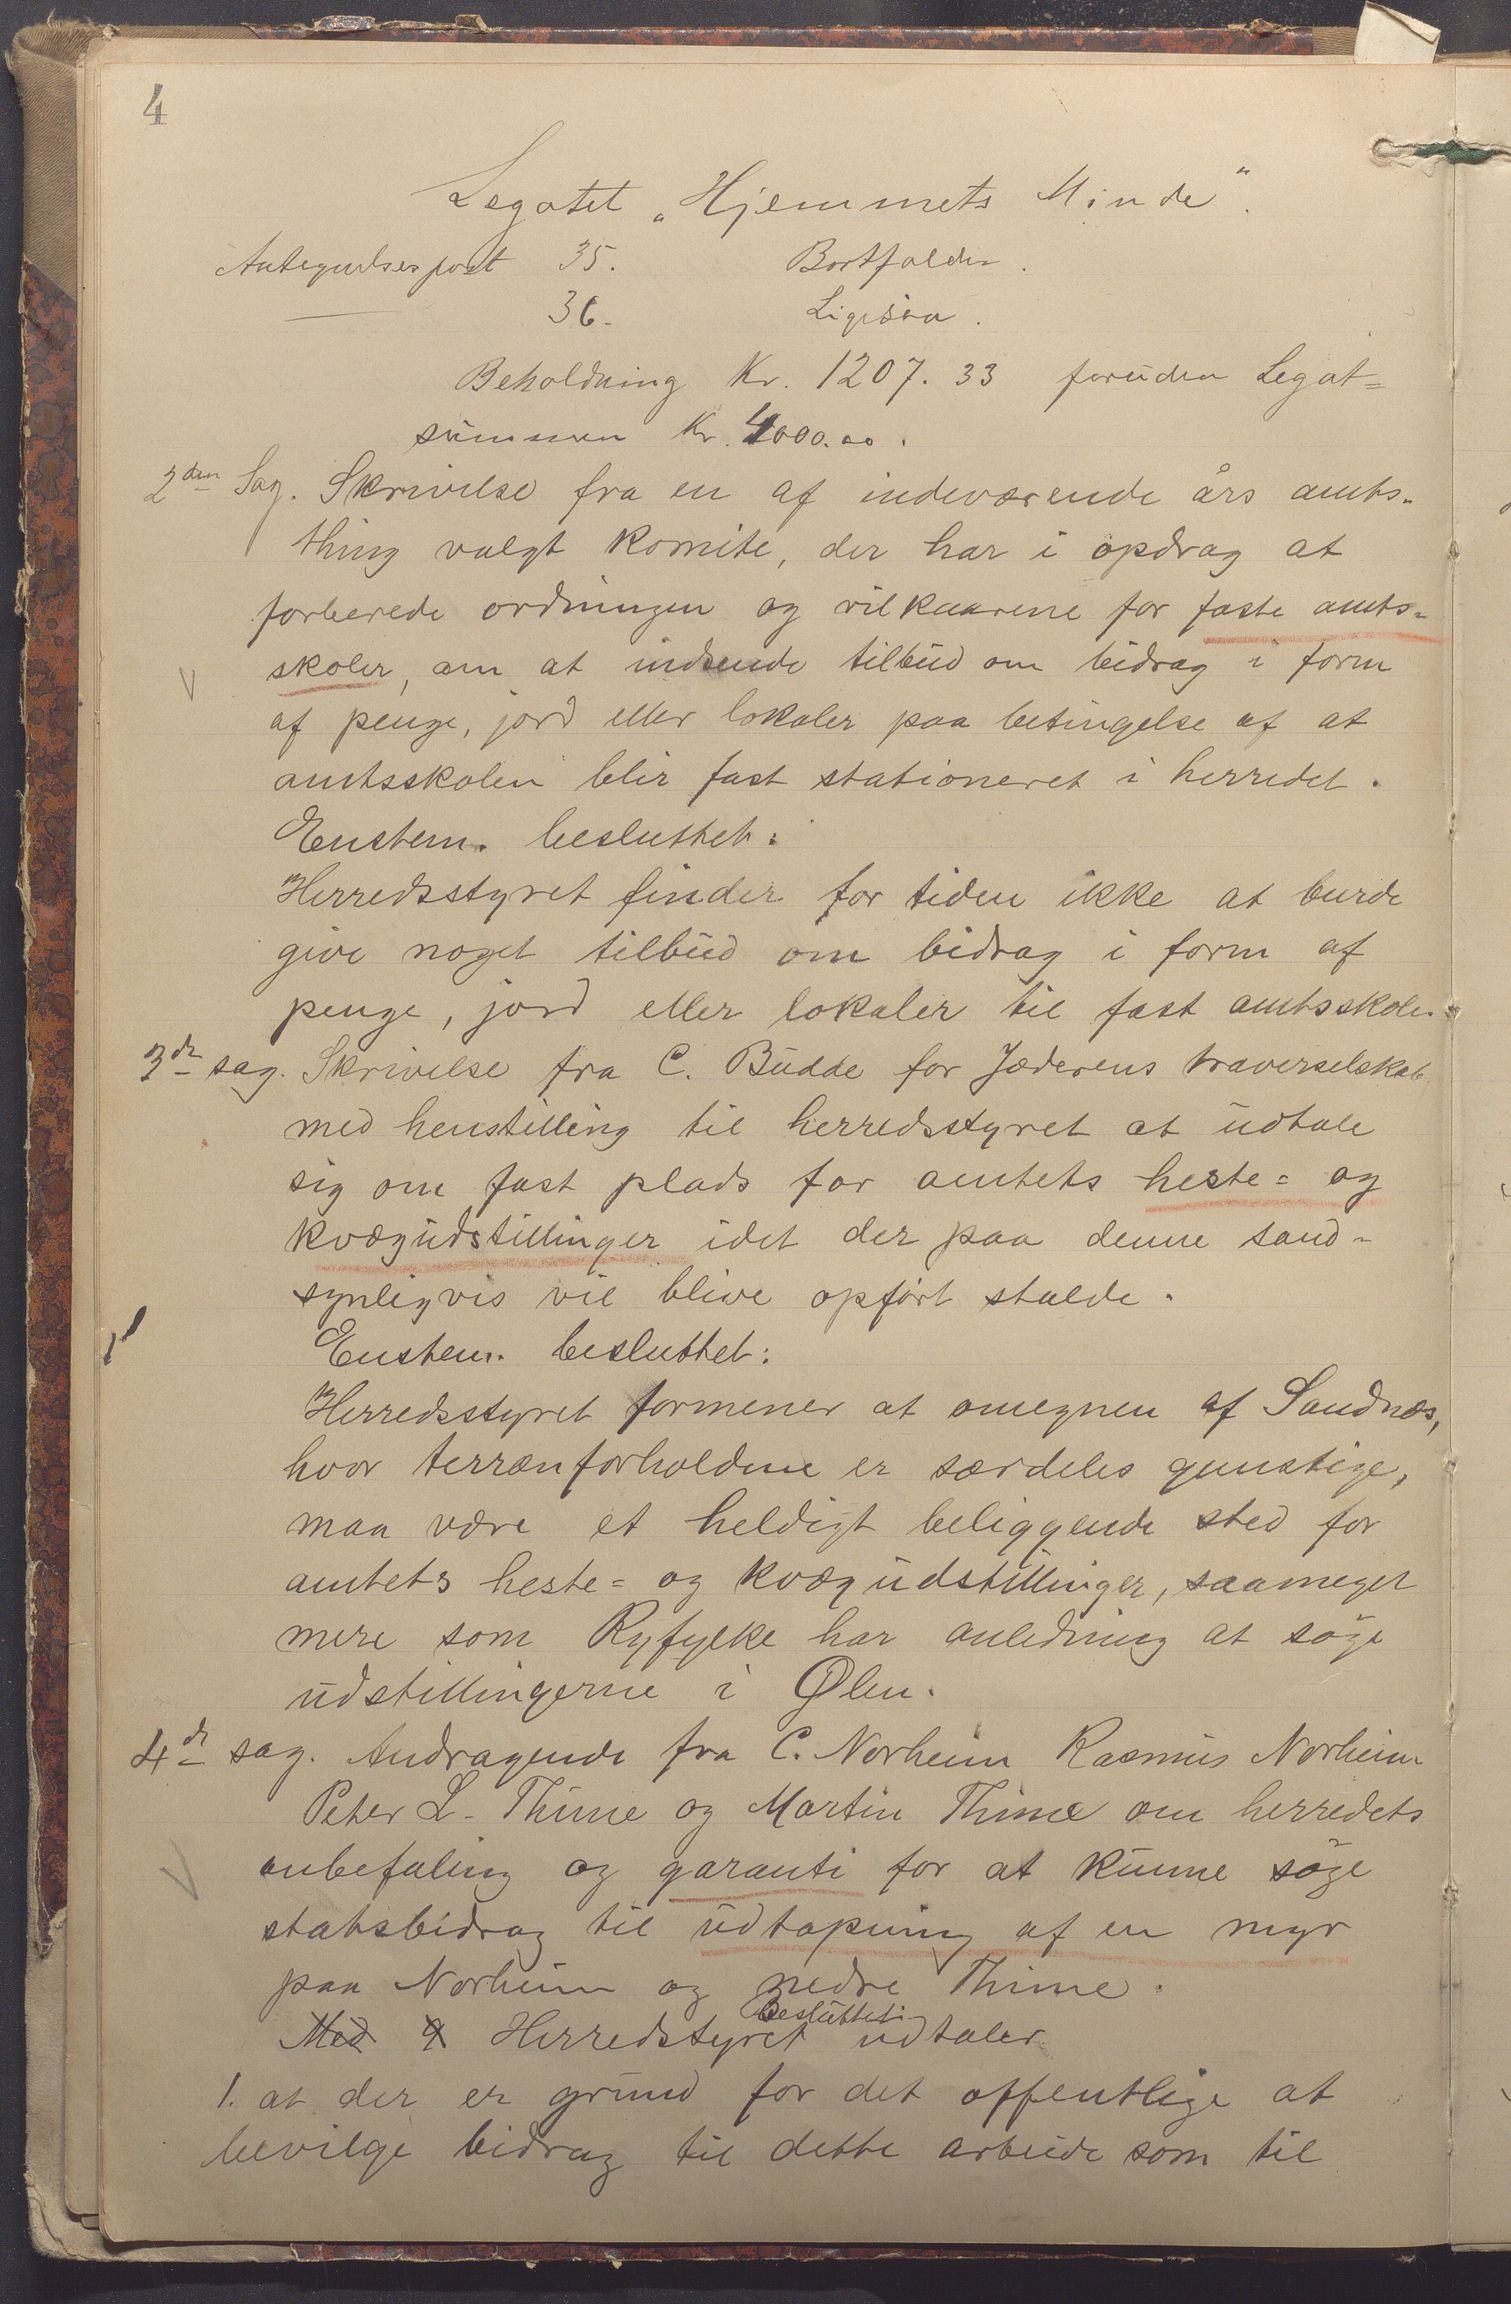 4
Legatet „Hjemmets Minde“.
Antegnelsespost 35. Bortfalder.
36. Ligesaa.
Beholdning Kr. 1207.33 foruden Legat=
summen Kr. 4000.00.
2den Sag. Skrivelse fra en af indeværende års amts-
thing valgt komite, der har i opdrag at
forberede ordningen og vilkaarene for faste amts-
skoler, om at indsende tilbud om bidrag i form
af penge, jord eller lokaler paa betingelse af at
amtsskolen blir fast stationeret i herredet.
Enstem. besluttet:
Herredsstyret finder for tiden ikke at burde
give noget tilbud om bidrag i form af
penge, jord eller lokaler til fast amtsskole.
3de sag. Skrivelse fra C. Budde for Jæderens traverselskab
med henstilling til herredsstyret at udtale
sig om fast plads for amtets heste= og
kvægudstillinger idet der paa denne sand-
synligvis vil blive opført stalde.
Enstem. besluttet:
Herredsstyret formener at omegnen af Sandnæs,
hvor terrænforholdene er særdeles gunstige,
maa være et heldigt beliggende sted for
amtets heste= og kvægudstillinger, saameget
mere som Ryfylke har anledning at søge
udstillingerne i Ølen.
4de sag. Andragende fra C. Norheim Rasmus Norheim
Peter L. Thime og Martin Thime om herredets
anbefaling og garanti for at kunne søge
statsbidrag til udtapning af en myr
paa Norheim og nedre Thime.
Besluttet:
Med 9 Herredstyret udtaler
1. at der er grund for det offentlige at
bevilge bidrag til dette arbeide som til